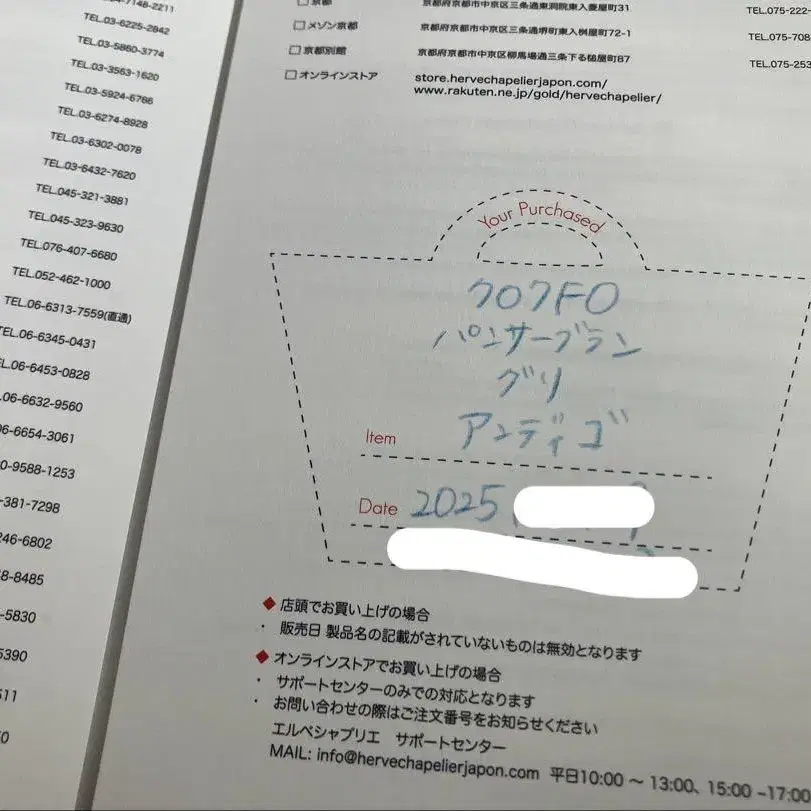 TEL.03-6225-2842
TEL.03-5860-3774
TEL.03-3563-1620
TEL.03-5924-6766
TEL.03-6274-8928
TEL.03-6302-0078
TEL.03-6432-7620
TEL.045-321-3881
TEL.045-323-9630
TEL.076-407-6680
TEL.052-462-1000
TEL.06-6313-7559(直通)
TEL.06-6345-0431
EL.06-6453-0828
.06-6632-9560
06-6654-3061
0-9588-1253
-381-7298
246-6802
8-8485
-5830
5390
511
0
□ 京都 京都府京都市中京区三条通東洞院東入菱屋町31 TEL.075-222-
□ メゾン京都 京都府京都市中京区三条通堺町東入桝屋町72-1 TEL.075-708
□ 京都別館 京都府京都市中京区柳馬場通三条下る槌屋町87 TEL.075-253
□ オンラインストア store.hervechapelierjapon.com/
www.rakuten.ne.jp/gold/hervechapelier/
Your Purchased
クロワFO
パンサーブラン
グリ
Item アンディゴ
Date 2025
◆ 店頭でお買い上げの場合
・ 販売日 製品名の記載がされていないものは無効となります
◆ オンラインストアでお買い上げの場合
・ サポートセンターのみでの対応となります
・ お問い合わせの際はご注文番号をお知らせください
エルベシャプリエ サポートセンター
MAIL: info@hervechapelierjapon.com 平日10:00 ~ 13:00、15:00 -17:00